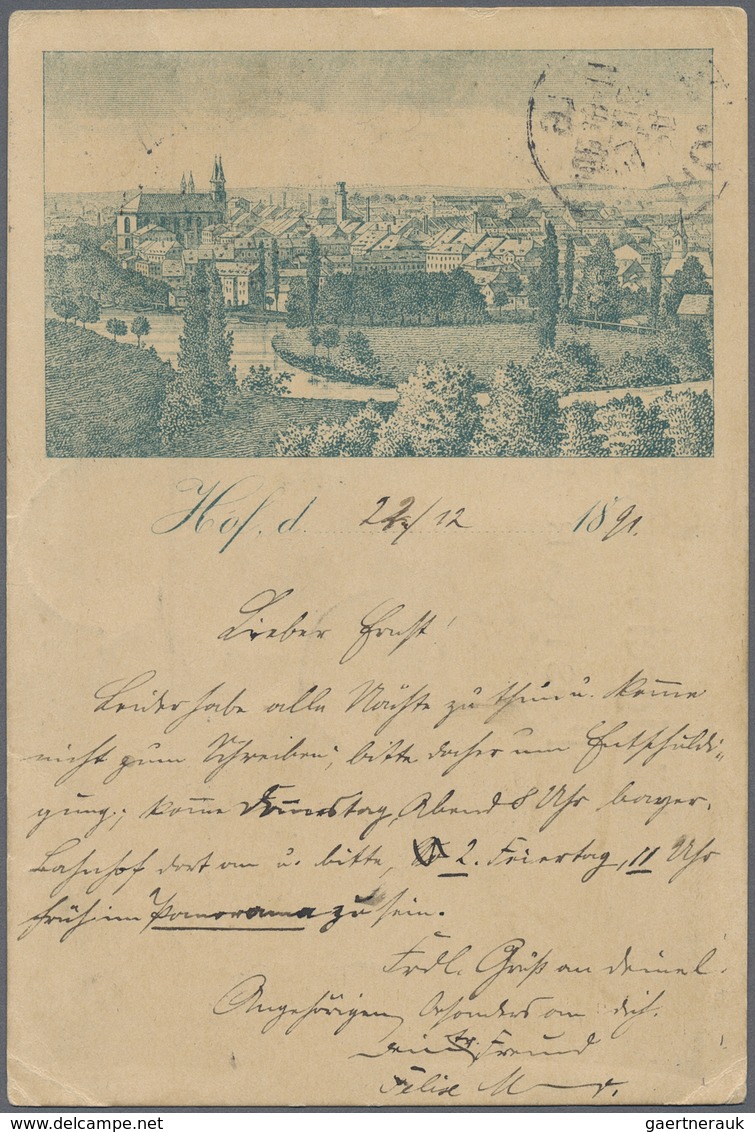 Hof, d. 22/12 1891.
Lieber Ernst!
Leider habe alle Nächte zu thun u. komme
nicht zum Schreiben, bitte daher um Entschuldi-
gung; komme Donnerstag Abend 8 Uhr bayer.
Bahnhof dort an u. bitte, 2. Feiertag, 11 Uhr
früh im Panorama zu sein.
Frdl. Gruß an deine l.
Angehörigen besonders an dich.
dein tr. Freund
Felix
gaertnerauk